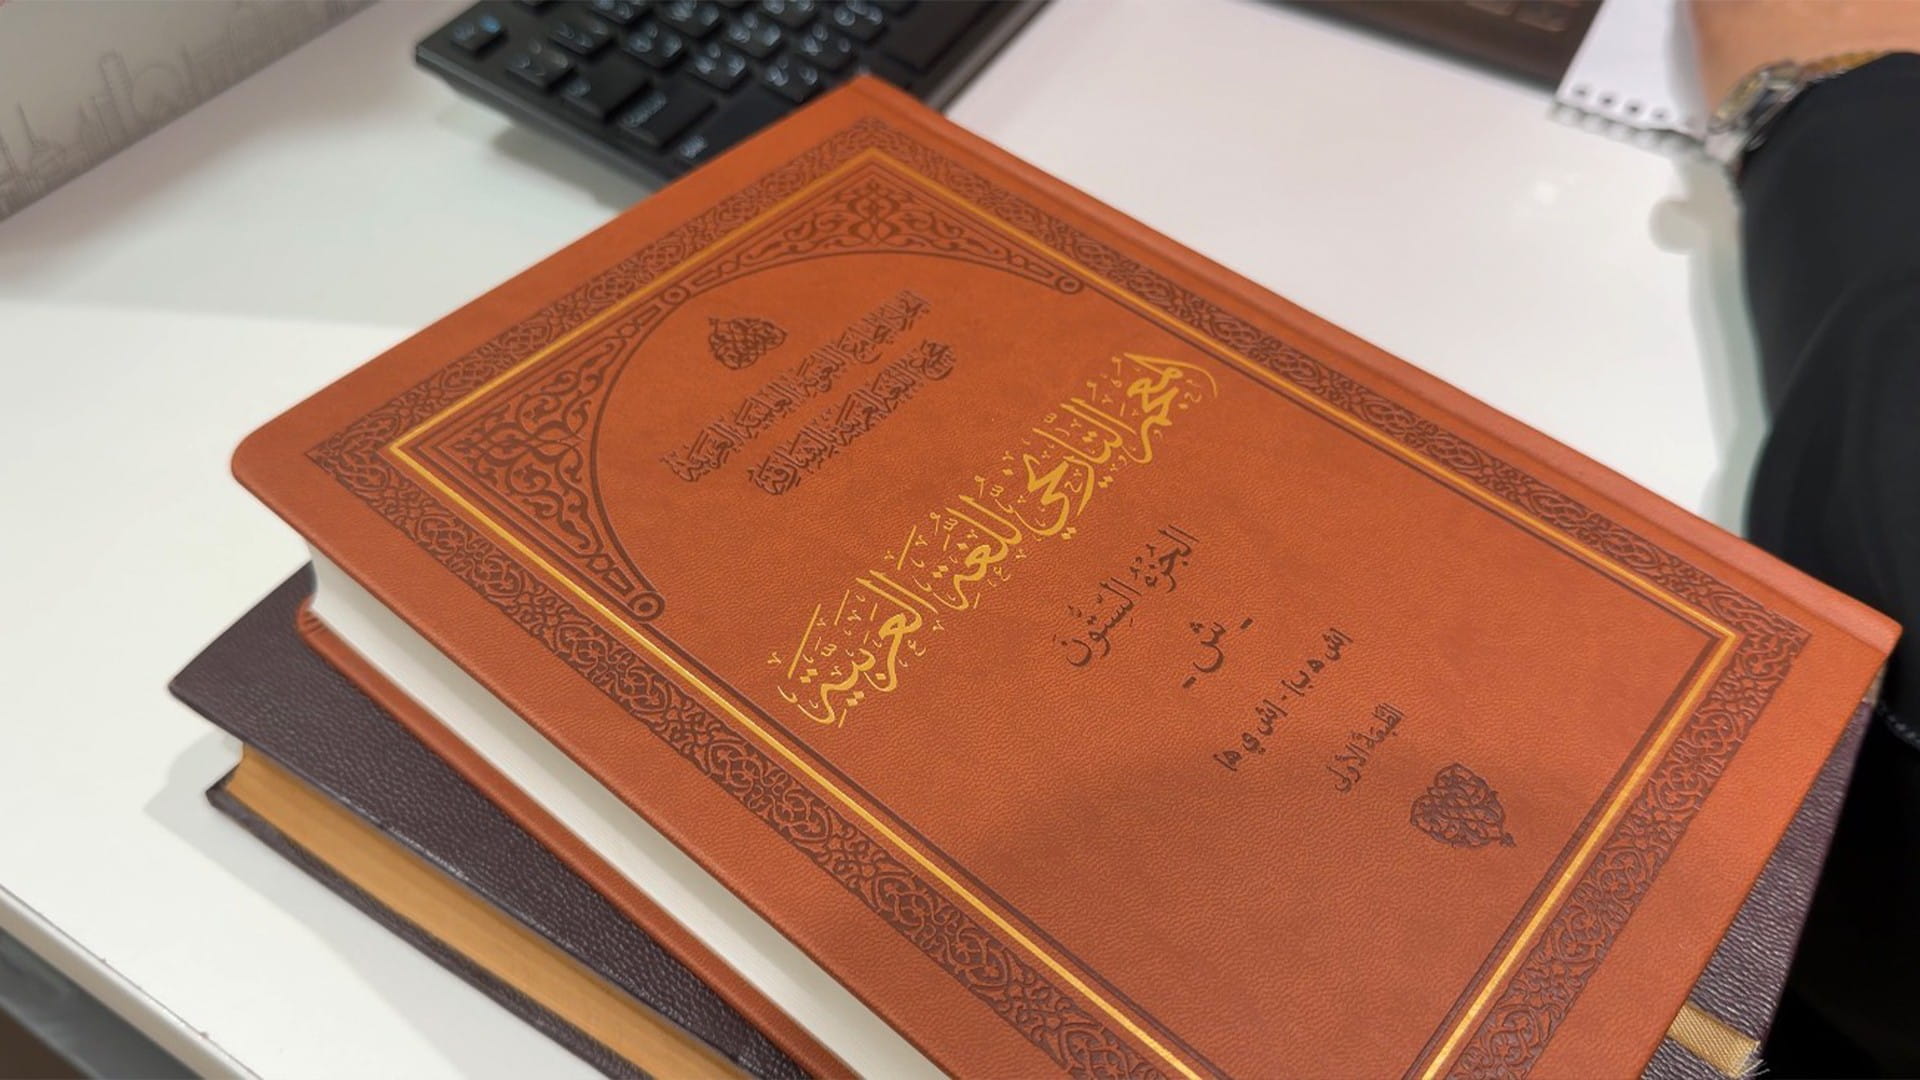 اتحاد المجامع اللغوية العلمية العربية
مجمع اللغة العربية بالشارقة
المعجم التاريخي للغة العربية
الجُزْءُ السِّتُّونَ
- ش -
(ش ه ب) - (ش ي ه)
الطَّبعَة الأولى